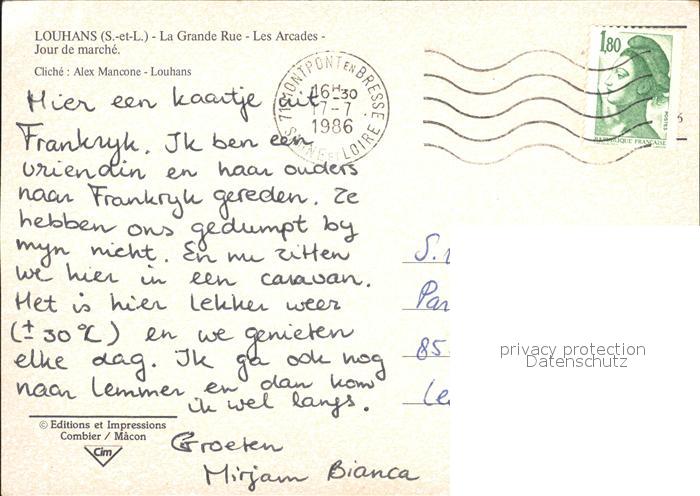 LOUHANS (S.-et-L.) - La Grande Rue - Les Arcades -
Jour de marché.
Cliché : Alex Mancone - Louhans
71 MONTPONT EN BRESSE
16H30
17-7
1986
SAONE ET LOIRE
1,80
POSTES
REPUBLIQUE FRANÇAISE
Hier een kaartje uit
Frankryk. Ik ben een
vriendin en haar ouders
naar Frankryk gereden. Ze
hebben ons gedumpt by
myn nicht. En nu zitten
we hier in een caravan.
Het is hier lekker weer
(± 30 °C) en we genieten
elke dag. Ik ga ook nog
naar Lemmer en dan kom
ik wel langs.
Groeten
Mirjam Bianca
S.
Par
85
Le
privacy protection
Datenschutz
© Editions et Impressions
Combier / Mâcon
Cim